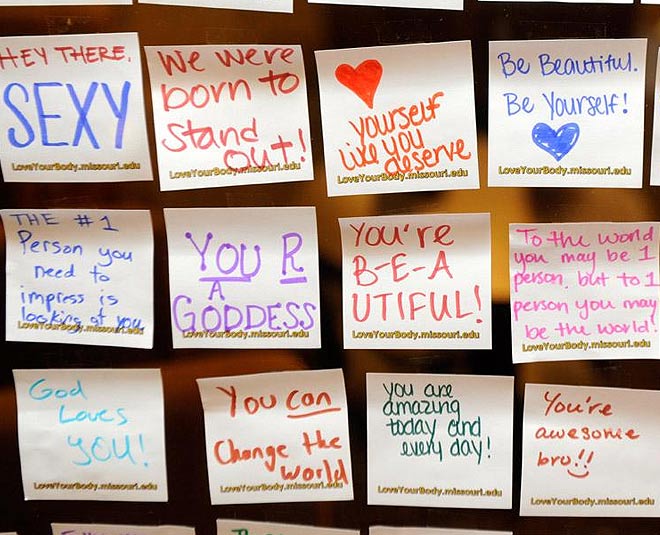 HEY THERE,
SEXY
LoveYourBody.missouri.edu
We were
born to
stand
out!
LoveYourBody.missouri.edu
yourself
like you
deserve
LoveYourBody.missouri.edu
Be Beautiful.
Be Yourself!
LoveYourBody.missouri.edu
THE #1
Person you
need to
impress is
looking at you
LoveYourBody.missouri.edu
YOU R
A
GODDESS
LoveYourBody.missouri.edu
YOU'RE
B-E-A
UTIFUL!
LoveYourBody.missouri.edu
To the world
you may be 1
person, but to 1
person you may
be the world!
LoveYourBody.missouri.edu
God
Loves
YOU!
LoveYourBody.missouri.edu
You can
Change the
world
LoveYourBody.missouri.edu
you are
amazing
today and
every day!
LoveYourBody.missouri.edu
You're
awesome
bro!!
LoveYourBody.missouri.edu